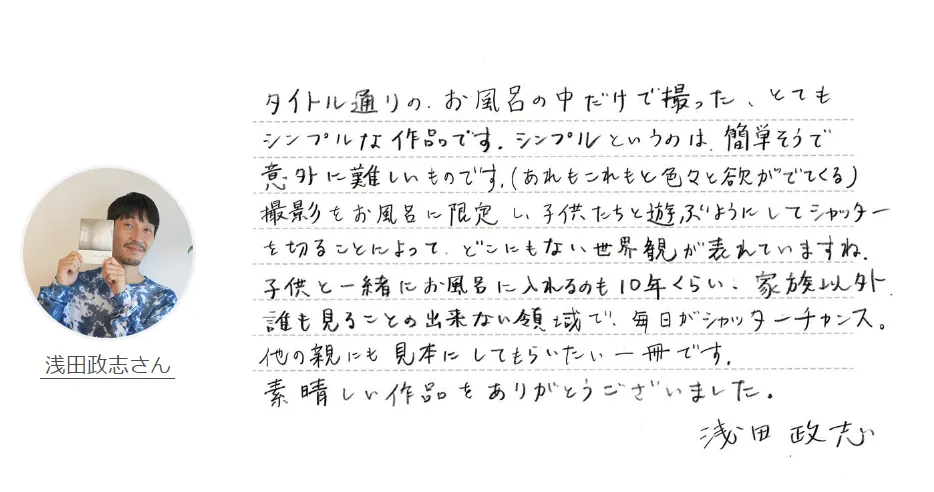 タイトル通りの、お風呂の中だけで撮った、とても
シンプルな作品です。シンプルというのは、簡単そうで
意外に難しいものです。(あれもこれもと色々と欲がでてくる)
撮影をお風呂に限定し、子供たちと遊ぶようにしてシャッター
を切ることによって、どこにもない世界観が表れていますね。
子供と一緒にお風呂に入れるのも10年くらい、家族以外
誰も見ることの出来ない領域で、毎日がシャッターチャンス。
他の親にも見本にしてもらいたい一冊です。
素晴しい作品をありがとうございました。
浅田政志
浅田政志さん